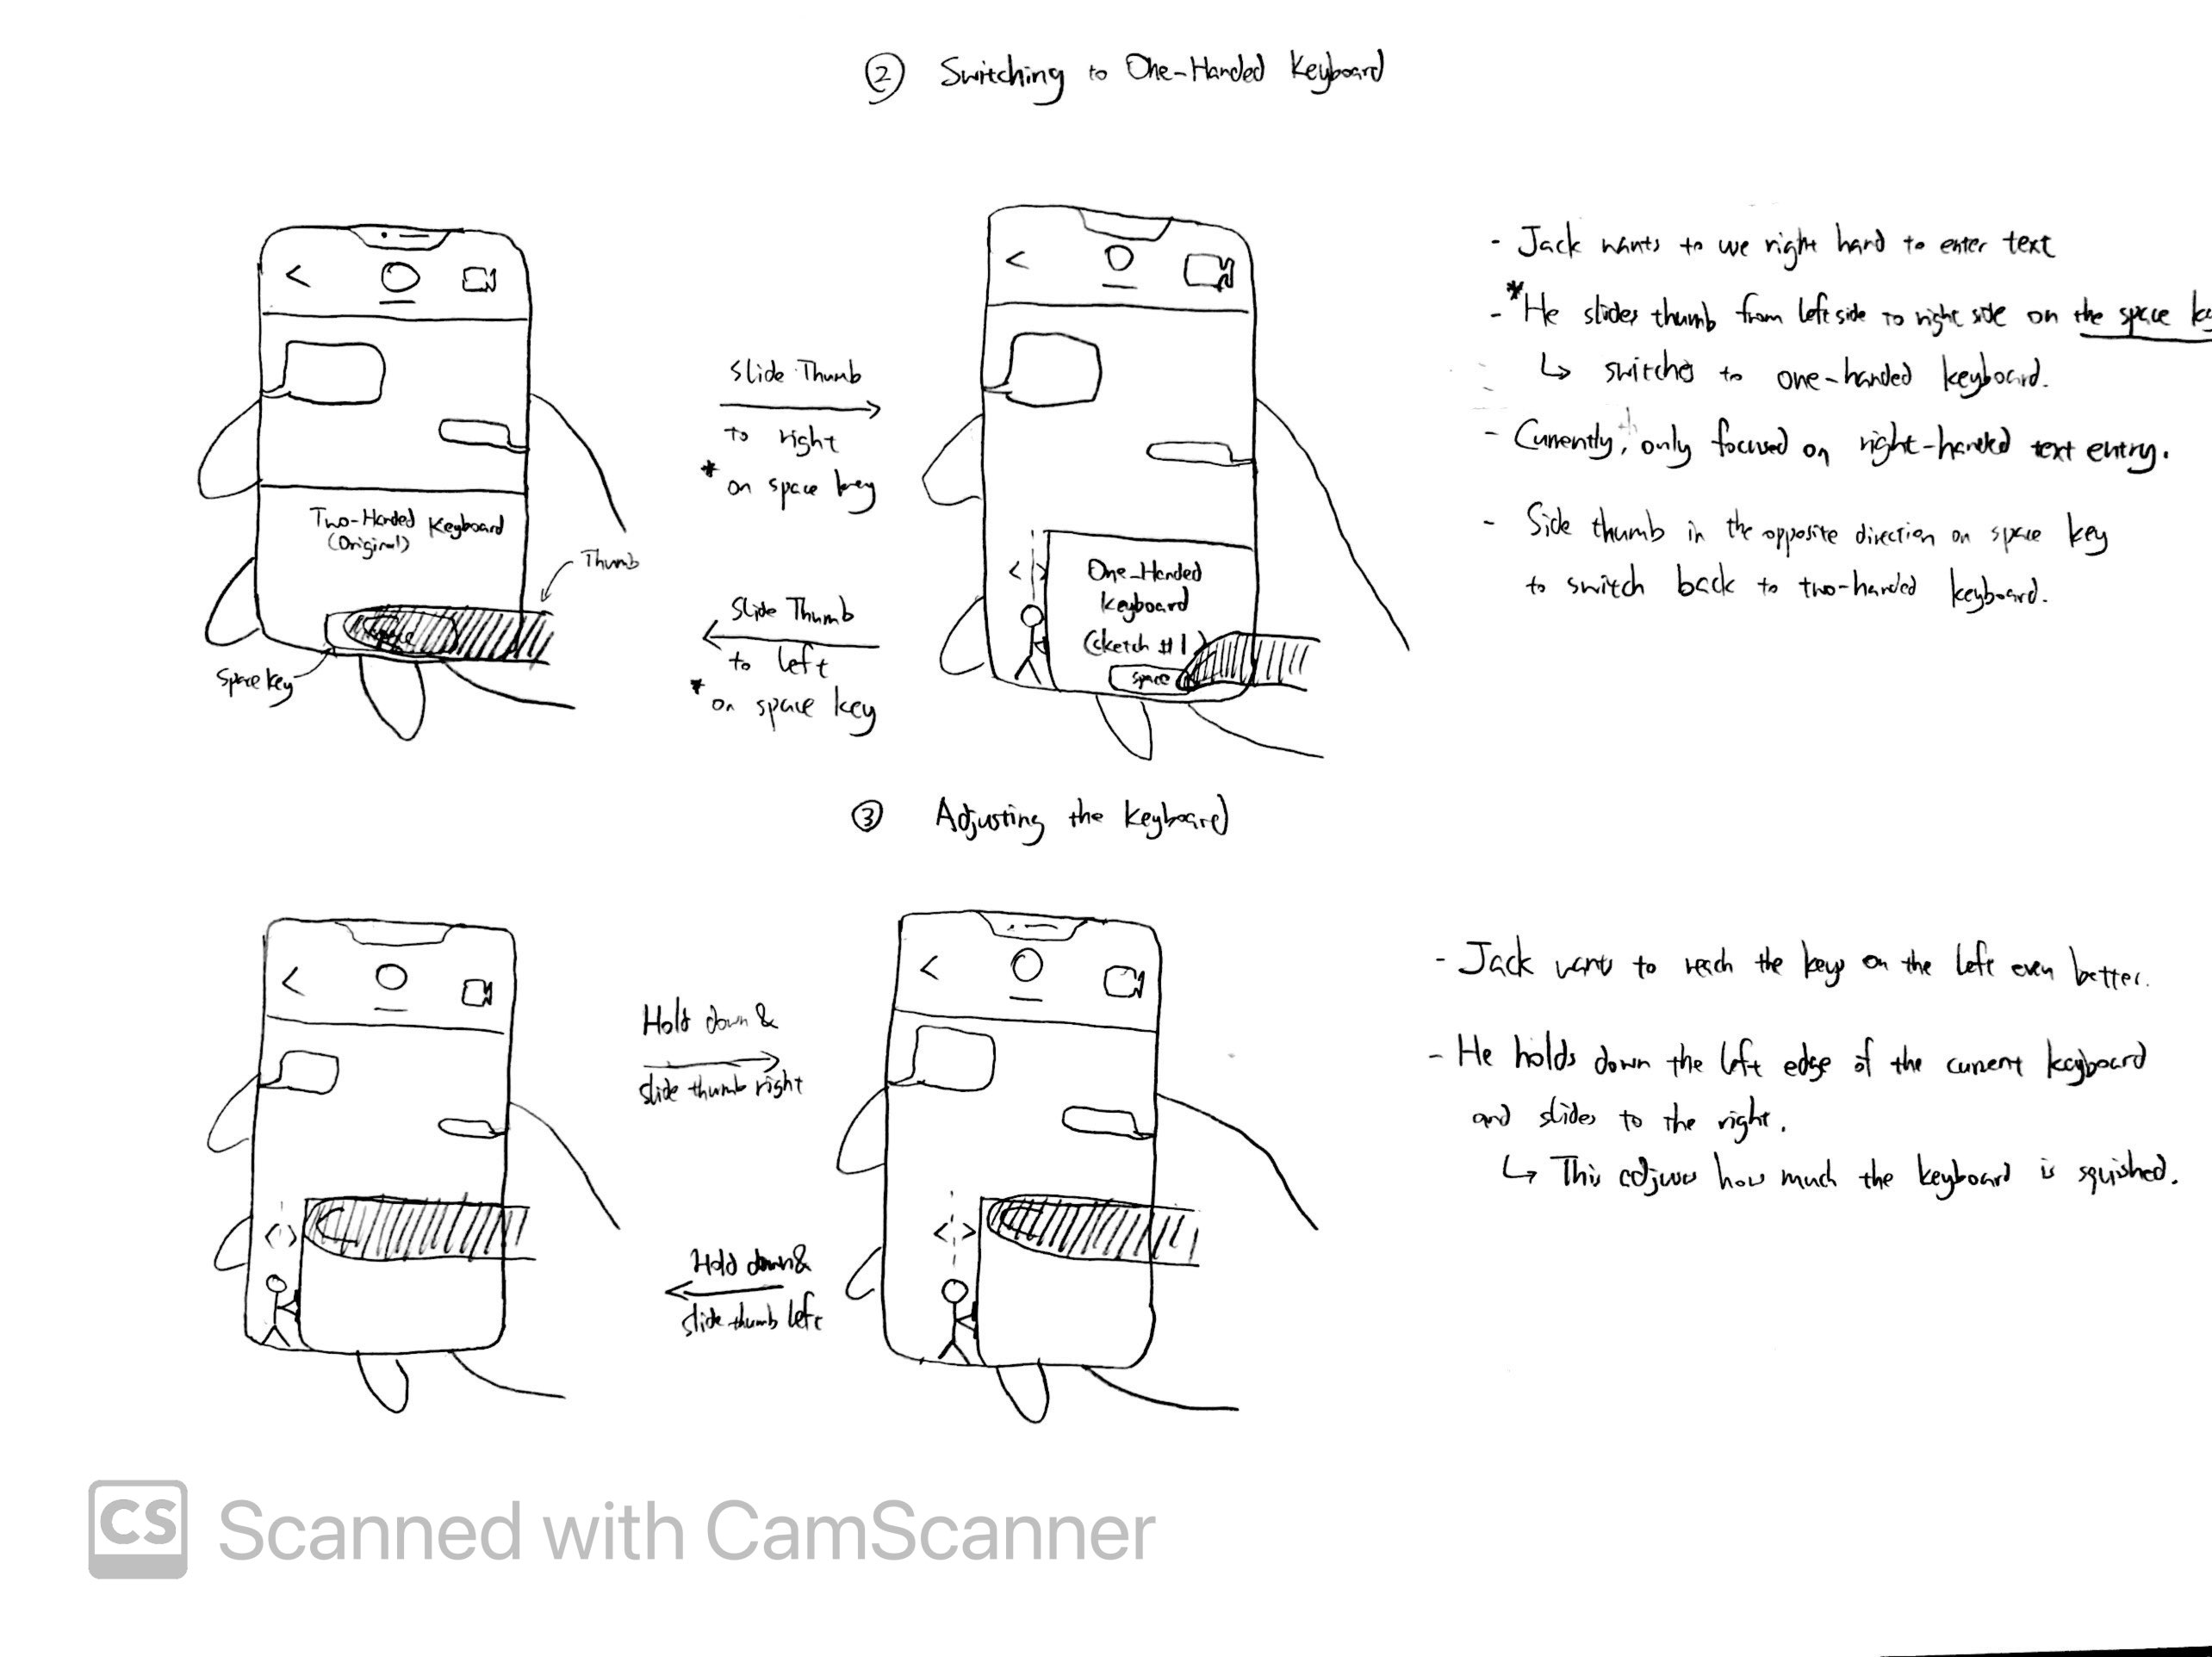 ② Switching to One-Handed Keyboard
Slide Thumb
to right
* on space key
Two-Handed Keyboard
(Original)
Thumb
Space key
Slide Thumb
to left
* on space key
One-Handed
Keyboard
(sketch #1)
space
- Jack wants to use right hand to enter text
- *He slides thumb from left side to right side on the space ke
↳ switches to one-handed keyboard.
- Currently, only focused on right-handed text entry.
- Side thumb in the opposite direction on space key
to switch back to two-handed keyboard.
③ Adjusting the Keyboard
Hold down &
slide thumb right
Hold down &
slide thumb left
- Jack wants to reach the keys on the left even better.
- He holds down the left edge of the current keyboard
and slides to the right.
↳ This adjusts how much the keyboard is squished.
CS Scanned with CamScanner